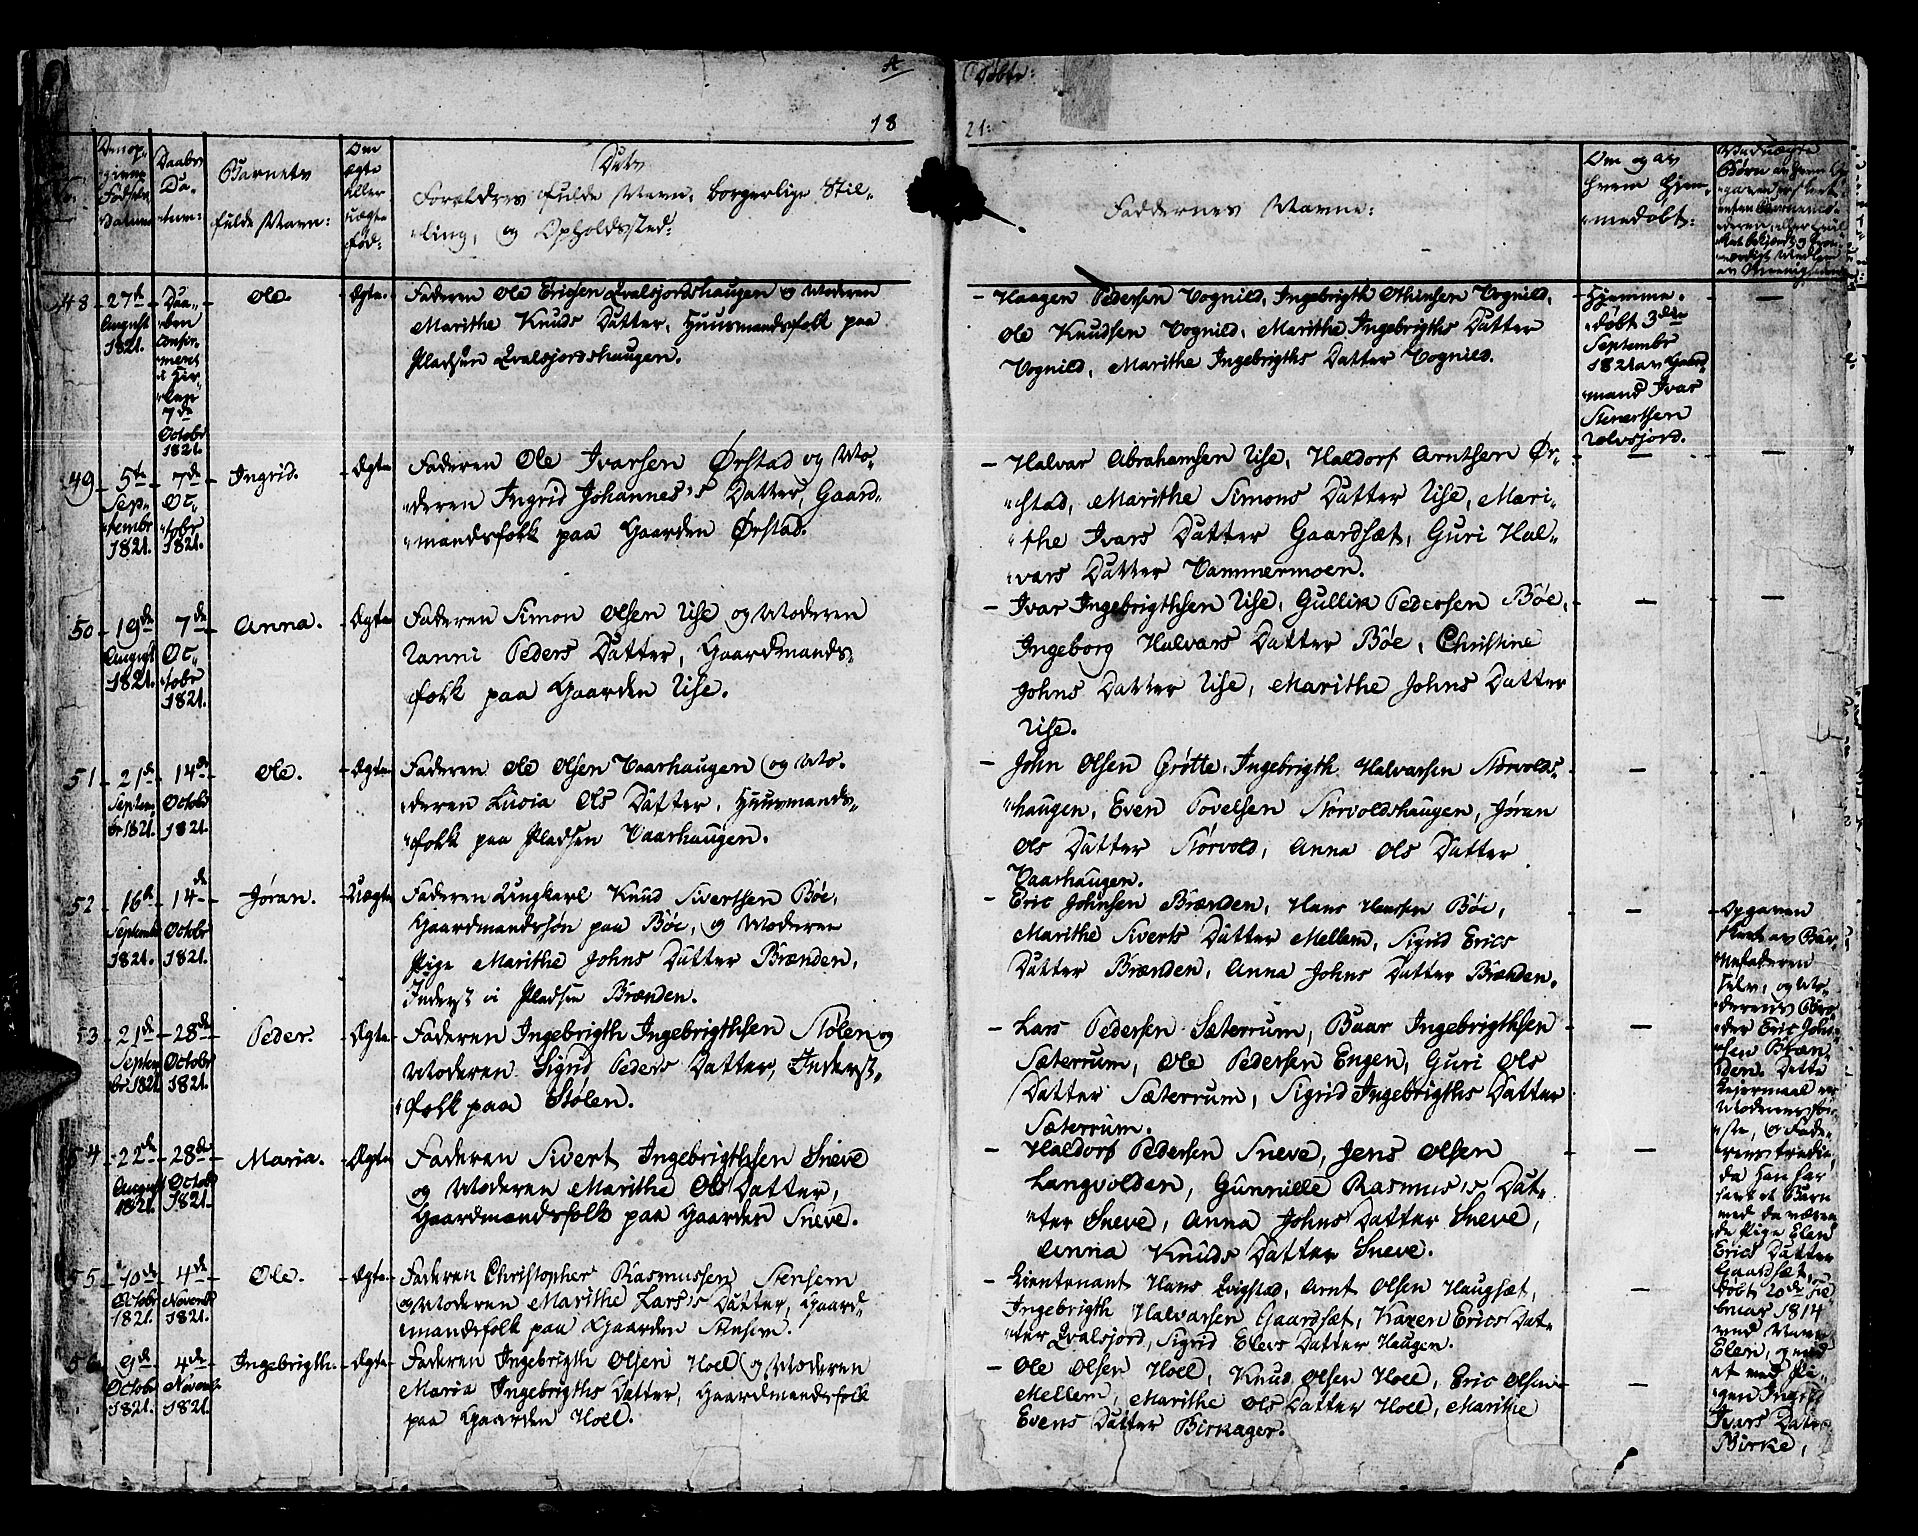 A
Døbte:
18
21:
Daabs
Da-
-tum:
Barnets
fulde Navn:
Om
ægte
eller
uægte
fød:
Dets
Forældres fulde Navn, borgerlige Stil-
-ling, og Opholdssted:
Faddernes Navne:
Om og av
hvem hjem-
-medøbt:
48
27de
August
1821.
Daa-
-ben
confir-
meret
i Kir-
-ken
7de
Octobr
1821.
Ole.
Ægte
Faderen Ole Ericsen Qvalsjordshaugen og Moderen
Marithe Knuds Datter, Huusmandsfolk paa
Pladsen Qvalsjordshaugen.
Haagen Pedersen Vognild, Ingebrigth Othinsen Vognild,
Ole Knudsen Vognild, Marithe Ingebrigths Datter
Vognild, Marithe Ingebrigths Datter Vognild.
Hjemme-
-døbt 3die
Septembr
1821 av Gaard-
-mand Ivar
Sivertsen
49
5te
Sep-
-tembr
1821.
7de
Oc-
-tobr
1821.
Ingrid.
Ægte
Faderen Ole Ivarsen Ørstad og Mo-
-deren Ingrid Johannes's Datter, Gaard-
-mandsfolk paa Gaarden Ørstad.
Halvar Abrahamsen Uise, Haldorf Arntsen Ør-
-stad, Marithe Simons Datter Uise, Mari-
-the Ivars Datter Gaardsæt, Guri Hal-
-vars Datter Vammermoen.
50
19de
August
1821.
7de
Oc-
-tobr
1821.
Anna.
Ægte
Faderen Simon Olsen Uise og Moderen
Ranni Peders Datter, Gaardmands-
-folk paa Gaarden Uise.
Ivar Ingebrigthsen Uise, Gullik Pedersen Bøe,
Ingeborg Halvars Datter Bøe, Christine
Johns Datter Uise, Marithe Johns Datter
Uise.
51
21de
Septem-
br 1821.
14de
Octobr
1821.
Ole.
Ægte
Faderen Ole Olsen Vaarhaugen og Mo-
-deren Lucia Ols Datter, Huusmands-
-folk paa Pladsen Vaarhaugen.
John Olsen Grøtte, Ingebrigth Halvarsen Storvolds-
-haugen, Even Povelsen Storvoldshaugen, Jøran
Ols Datter Storvold, Anna Ols Datter
Vaarhaugen.
52
16de
Septembr
1821.
14de
Octobr
1821.
Jøran.
Uægte
Faderen Ungkarl Knud Sivertsen Bøe,
Gaardmandssøn paa Bøe, og Moderen
Pige Marithe Johns Datter Brænden,
Inderst i Pladsen Brænden.
Eric Johnsen Brænden, Hans Hanssen Bøe,
Marithe Siverts Datter Mellem, Sigrid Erics
Datter Brænden, Anna Johns Datter Brænden.
Opgaven
skeet av Bar-
-nefaderen
selv, og Mo-
-derens Bro-
-der Eric John-
-sen Bræn-
-den. Dette
Leiermaal er
Moderens før-
-ste, og Fade-
-rens tredie,
da han har
havt et Barn
med da væren-
de Pige Elen
Erics Datter
Gaardsæt,
døbt 20de Fe-
bruar 1814
ved Navn
Elen, og end
et med Pi-
-gen Ingrid
Ivars Datter
Birke,
53
21de
Septem-
br 1821.
28de
Octobr
1821.
Peder.
Ægte
Faderen Ingebrigth Ingebrigthsen Stølen og
Moderen Sigrid Peders Datter, Inderst-
-folk paa Stølen.
Lars Pedersen Sæterrum, Baar Ingebrigthsen
Sæterrum, Ole Pedersen Engen, Guri Ols
Datter Sæterrum, Sigrid Ingebrigths Datter
Sæterrum.
54
22de
August
1821.
28de
Octobr
1821.
Maria.
Ægte
Faderen Sivert Ingebrigthsen Sneve
og Moderen Marithe Ols Datter,
Gaardmandsfolk paa Gaarden Sneve.
Haldorf Pedersen Sneve, Jens Olsen
Langvolden, Gunnille Rasmus's Dat-
-ter Sneve, Anna Johns Datter Sneve,
Anna Knuds Datter Sneve.
55
10de
Octobr
1821.
4de
Novembr
1821.
Ole.
Ægte
Faderen Christopher Rasmussen Stensem
og Moderen Marithe Lars's Datter, Gaard-
mandsfolk paa Gaarden Stensem.
Lieutenant Hans Qvigstad, Arnt Olsen Haugsæt,
Ingebrigth Halvarsen Gaardsæt, Karen Erics Dat-
-ter Qvalsjord, Sigrid Elevs Datter Haugen.
56
9de
Octobr
1821.
4de
Novembr
1821.
Ingebrigth.
Ægte
Faderen Ingebrigth Olsen Hoel og Moderen
Maria Ingebrigths Datter, Gaardmandsfolk
paa Gaarden Hoel.
Ole Olsen Hoel, Knud Olsen Hoel, Eric Olsen
Mellem, Marithe Ols Datter Hoel, Marithe
Evens Datter Birkager.